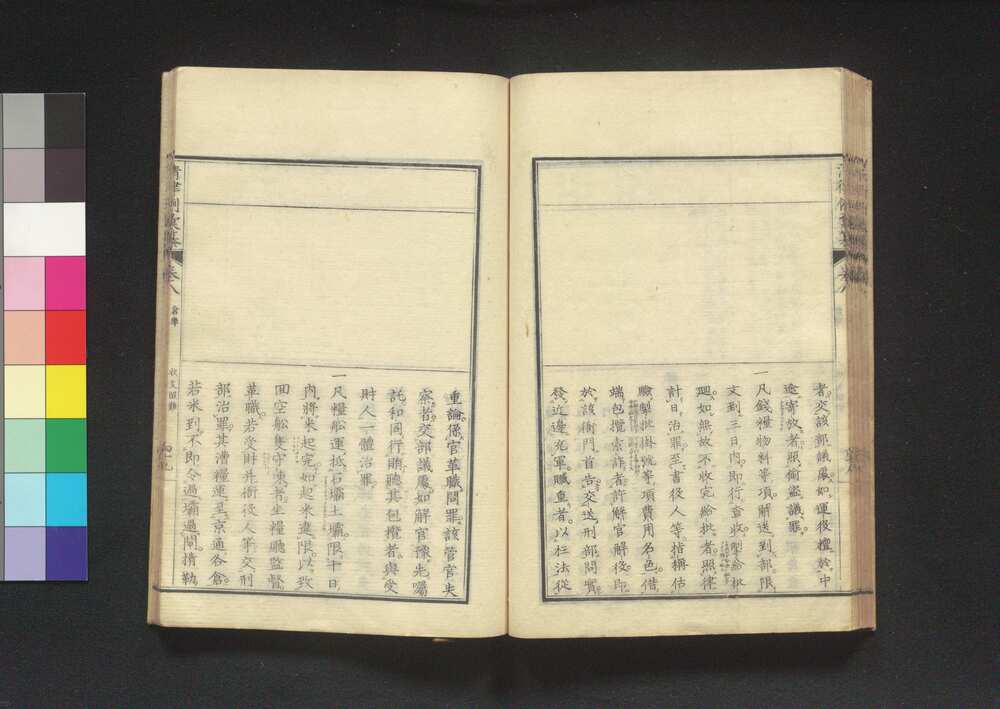 者交該部議處如運役擅於中
途寄放者照偷盜議罪
一凡錢糧物料等項解送到部限
文到三日內即行查收掣給批
廻如無故不收完給批者照律
計日治罪至書役人等指稱估
驗掣批掛號等項費用名色借
端包攬索詐者許解官解役即
於該衙門首告交送刑部問實
發近邊充軍贓重者以枉法從
重論係官革職問罪該管官失
察者交部議處如解官豫先囑
託和同行賄聽其包攬者與受
財人一體治罪
一凡糧船運抵石壩土壩限十日
內將米起完如起米違限以致
回空船隻守凍者坐糧廳監督
革職若受財并衙役人等交刑
部治罪其漕糧運至京通各倉
若米到不即令過壩過閘掯勒
卷之八
倉庫
收支留難